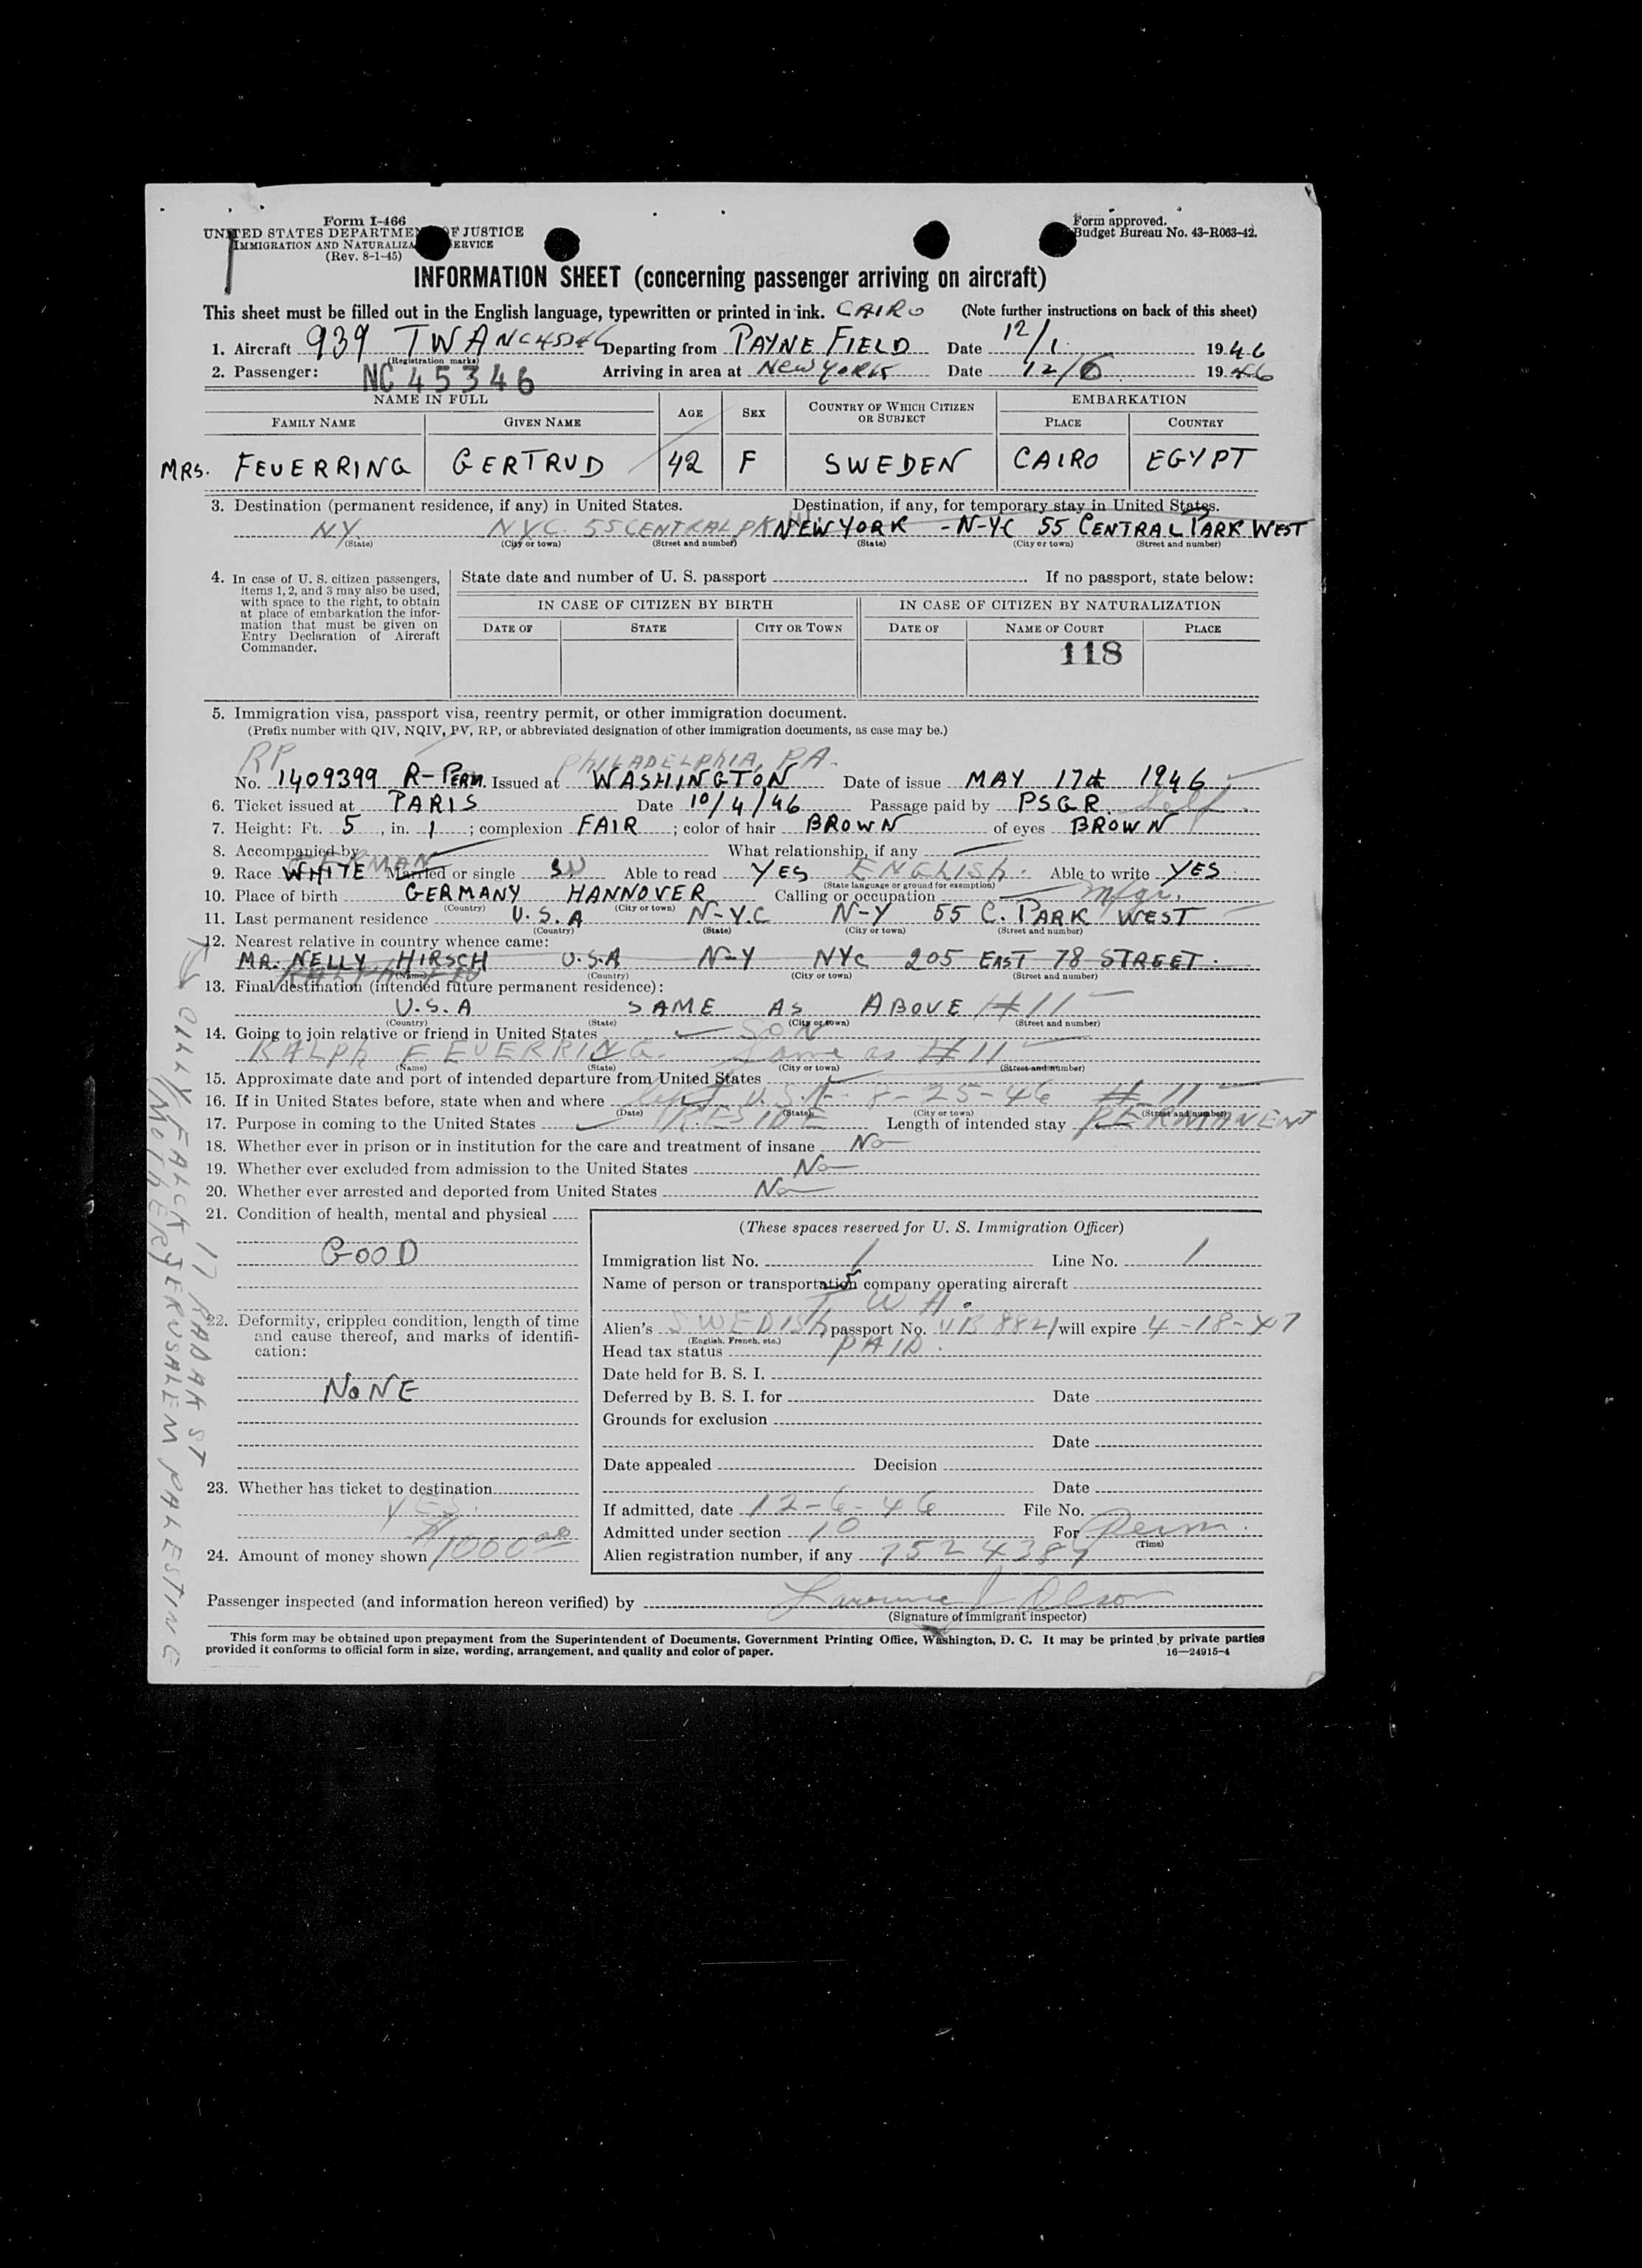 Form I-466
UNITED STATES DEPARTMENT OF JUSTICE
IMMIGRATION AND NATURALIZATION SERVICE
(Rev. 8-1-45)
Form approved.
Budget Bureau No. 43-R063-42.
INFORMATION SHEET (concerning passenger arriving on aircraft)
This sheet must be filled out in the English language, typewritten or printed in ink. CAIRO (Note further instructions on back of this sheet)
1. Aircraft 939 TWA NC45346 Departing from PAYNE FIELD Date 12/1 1946
(Registration marks)
2. Passenger: NC 45346 Arriving in area at NEW YORK Date 12/6 1946
NAME IN FULL AGE SEX COUNTRY OF WHICH CITIZEN OR SUBJECT EMBARKATION
FAMILY NAME GIVEN NAME PLACE COUNTRY
MRS. FEUERRING GERTRUD 42 F SWEDEN CAIRO EGYPT
3. Destination (permanent residence, if any) in United States. Destination, if any, for temporary stay in United States.
N.Y. N.Y.C. 55 CENTRAL PK W NEW YORK - N-YC 55 CENTRAL PARK WEST
(State) (City or town) (Street and number) (State) (City or town) (Street and number)
4. In case of U. S. citizen passengers, items 1, 2, and 3 may also be used, with space to the right, to obtain at place of embarkation the information that must be given on Entry Declaration of Aircraft Commander.
State date and number of U. S. passport If no passport, state below:
IN CASE OF CITIZEN BY BIRTH IN CASE OF CITIZEN BY NATURALIZATION
DATE OF STATE CITY OR TOWN DATE OF NAME OF COURT PLACE
118
5. Immigration visa, passport visa, reentry permit, or other immigration document.
(Prefix number with QIV, NQIV, PV, RP, or abbreviated designation of other immigration documents, as case may be.)
RP PHILADELPHIA, PA.
No. 1409399 R-PERM. Issued at WASHINGTON Date of issue MAY 17th 1946
6. Ticket issued at PARIS Date 10/4/46 Passage paid by PSGR. Self
7. Height: Ft. 5, in. 1; complexion FAIR; color of hair BROWN of eyes BROWN
8. Accompanied by What relationship, if any
GERMAN
9. Race WHITE Married or single Able to read YES ENGLISH. Able to write YES
(State language or ground for exemption)
10. Place of birth GERMANY HANNOVER Calling or occupation Mfgr.
(Country) (City or town)
11. Last permanent residence U.S.A N-Y.C N-Y 55 C. PARK WEST
(Country) (State) (City or town) (Street and number)
12. Nearest relative in country whence came:
MR. NELLY HIRSCH U.S.A N-Y NYC 205 EAST 78 STREET.
(Name) (Country) (City or town) (Street and number)
13. Final destination (intended future permanent residence):
U.S.A SAME AS ABOVE #11
(Country) (State) (City or town) (Street and number)
14. Going to join relative or friend in United States SON
RALPH FEUERRING. Same as #11
(Name) (State) (City or town) (Street and number)
15. Approximate date and port of intended departure from United States
16. If in United States before, state when and where left U.S.A. 8-25-46 #11
(Date) (State) (City or town) (Street and number)
17. Purpose in coming to the United States RESIDE Length of intended stay PERMANENT
18. Whether ever in prison or in institution for the care and treatment of insane No
19. Whether ever excluded from admission to the United States No
20. Whether ever arrested and deported from United States No
21. Condition of health, mental and physical
GOOD
22. Deformity, crippled condition, length of time and cause thereof, and marks of identification:
NONE
23. Whether has ticket to destination
YES.
24. Amount of money shown $1000.00
(These spaces reserved for U. S. Immigration Officer)
Immigration list No. 1 Line No. 1
Name of person or transportation company operating aircraft
T W A.
Alien's SWEDISH passport No. VB 8821 will expire 4-18-47
(English, French, etc.)
Head tax status PAID.
Date held for B. S. I.
Deferred by B. S. I. for Date
Grounds for exclusion
Date
Date appealed Decision
Date
If admitted, date 12-6-46 File No.
Admitted under section 10 For Perm.
(Time)
Alien registration number, if any 7524389
Passenger inspected (and information hereon verified) by Olson
(Signature of immigrant inspector)
This form may be obtained upon prepayment from the Superintendent of Documents, Government Printing Office, Washington, D. C. It may be printed by private parties
provided it conforms to official form in size, wording, arrangement, and quality and color of paper. 16—24915-4
FALCK 17 RADAK ST
(MOTHER) JERUSALEM PALESTINE